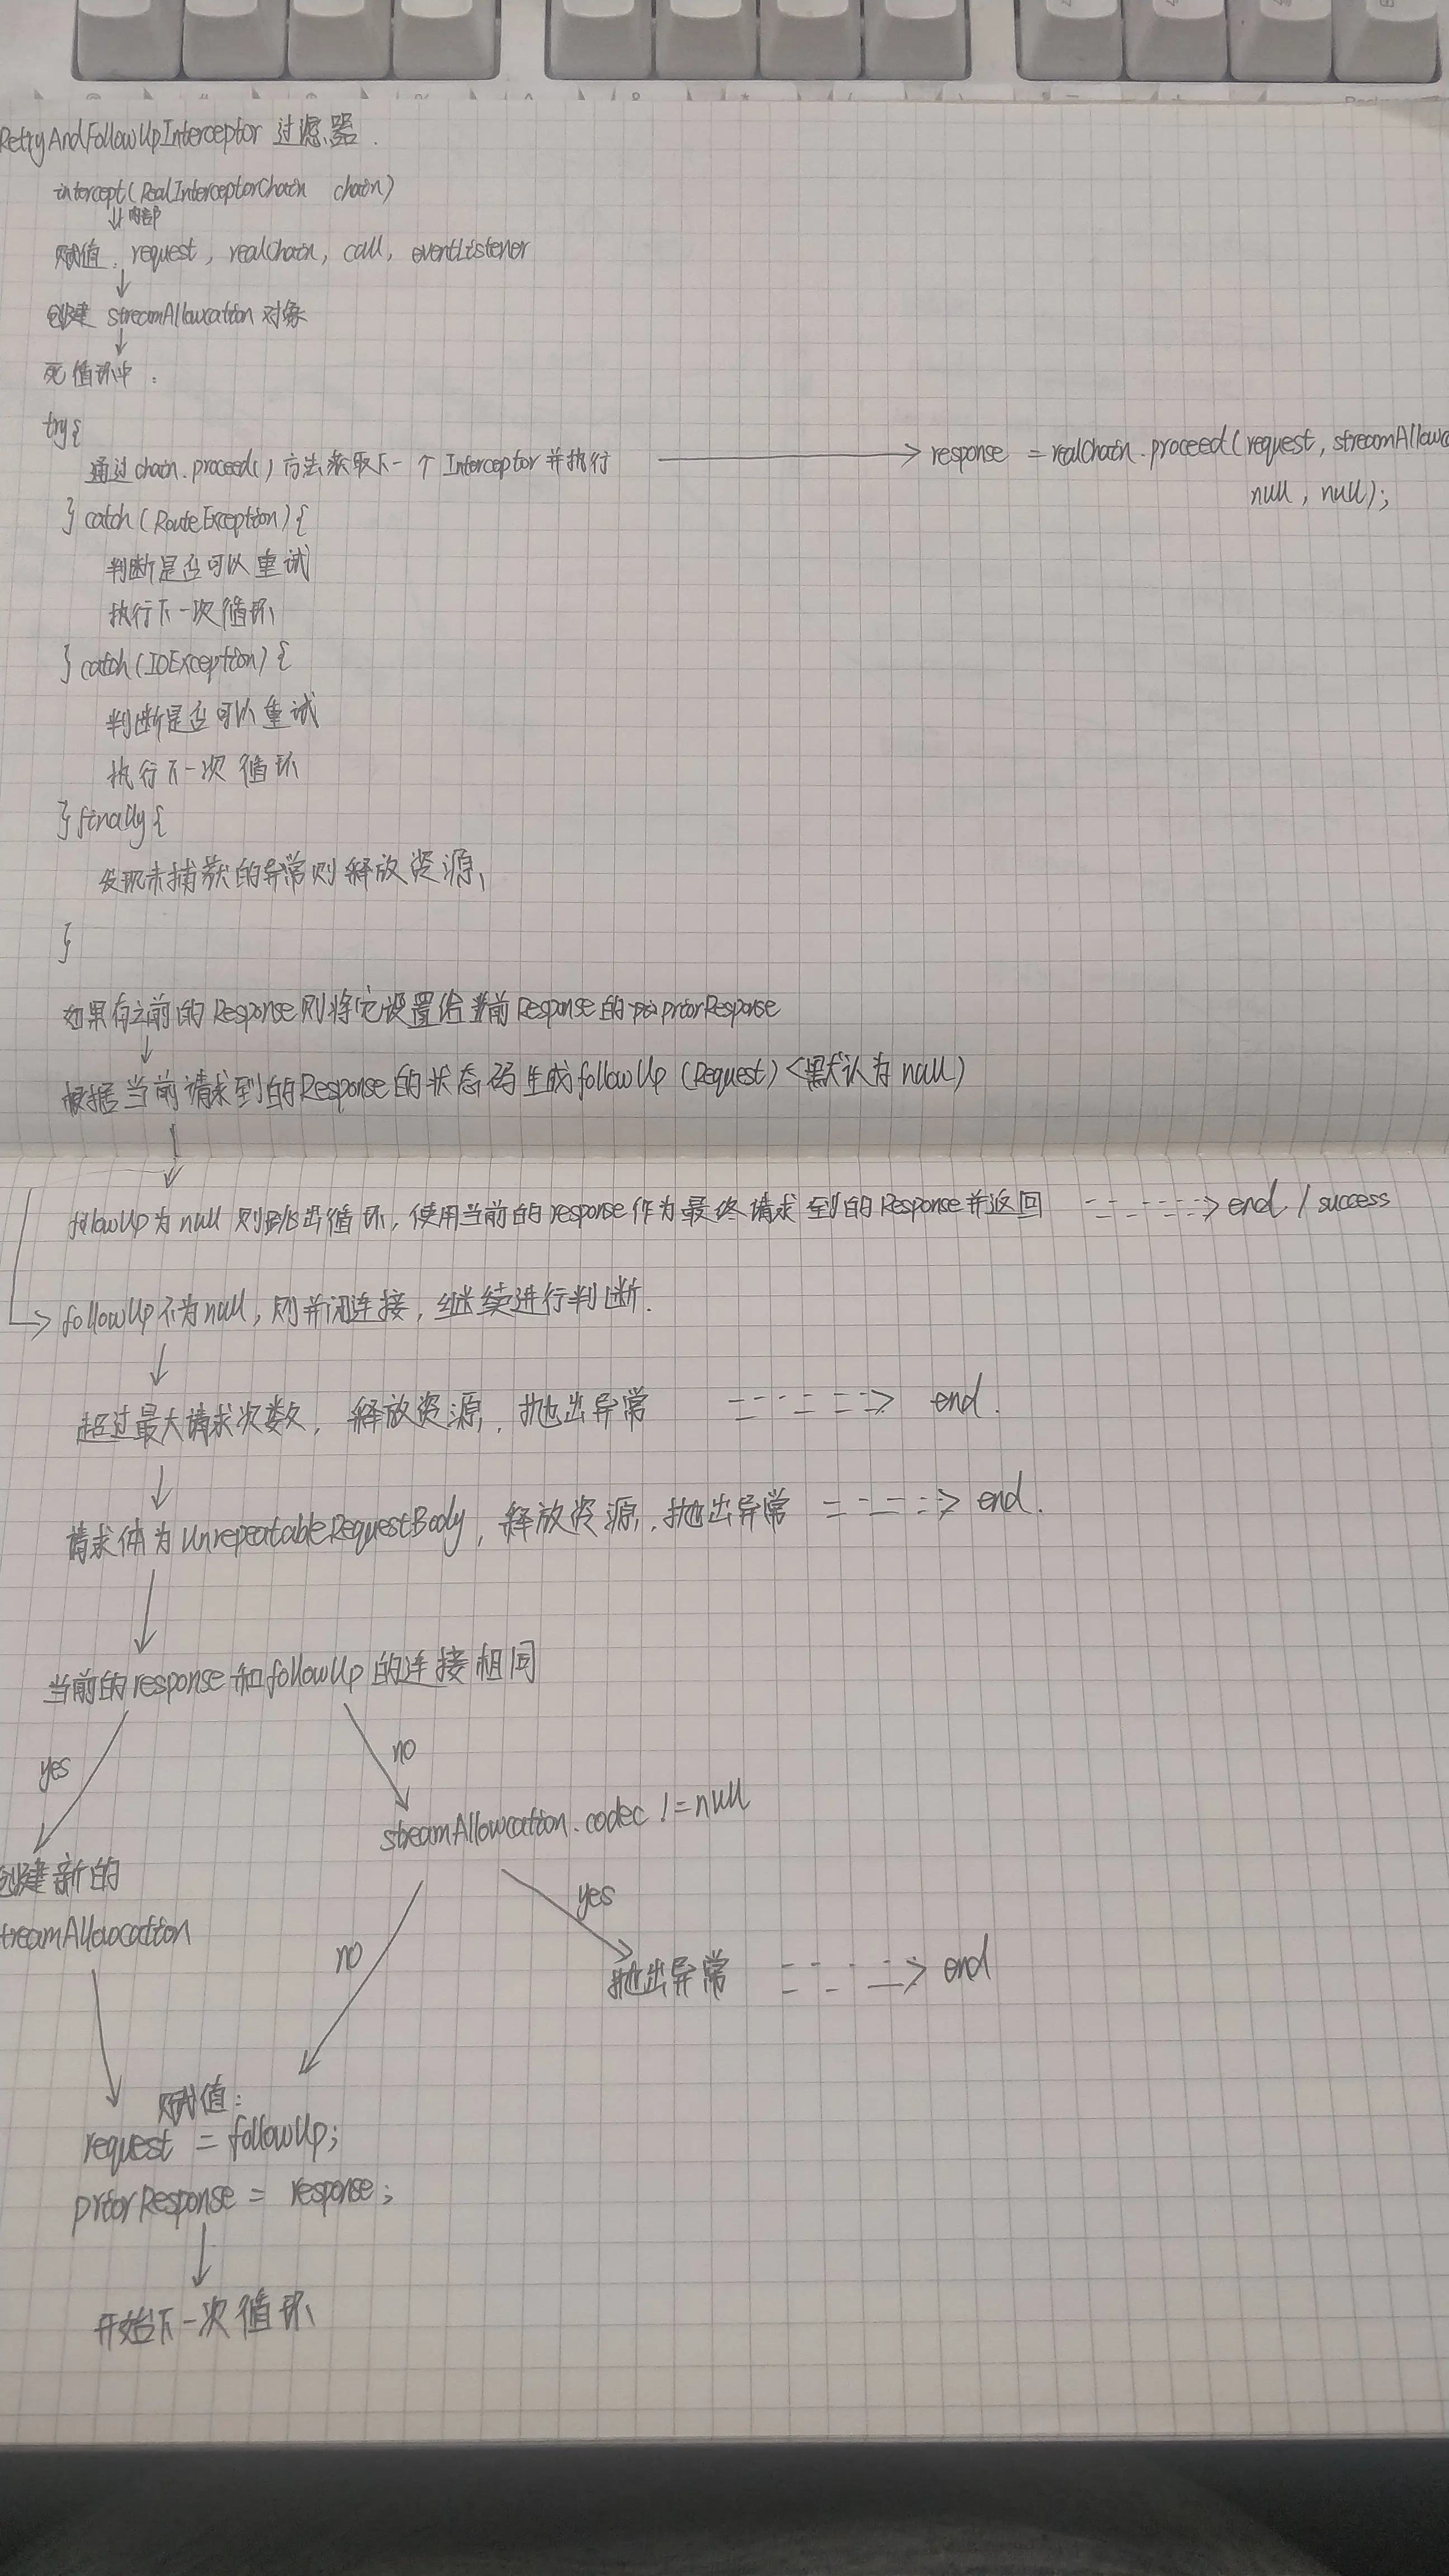 RetryAndFollowUpInterceptor 过滤器.
intercept(RealInterceptorChain chain)
内部
赋值: request, realChain, call, eventListener
创建 streamAllowcation 对象
死循环中:
try{
通过chain.proceed()方法获取下一个Interceptor并执行
response = realChain.proceed(request, streamAllowc
null, null);
} catch(RouteException){
判断是否可以重试
执行下一次循环
} catch(IOException){
判断是否可以重试
执行下一次循环
} finally{
发现未捕获的异常则释放资源
}
如果有之前的Response则将它设置给当前Response的priorResponse
根据当前请求到的Response的状态码生成followUp (Request)<默认为null)
followUp为null则跳出循环,使用当前的response作为最终请求到的Response并返回 end / success
followUp不为null,则关闭连接,继续进行判断.
超过最大请求次数, 释放资源, 抛出异常 end.
请求体为UnrepeatableRequestBody, 释放资源, 抛出异常 end.
当前的response和followUp的连接相同
yes
no
streamAllowcation.codec != null
创建新的
treamAllowcation
yes
no
抛出异常 end
赋值:
request = followUp;
priorResponse = response;
开始下一次循环